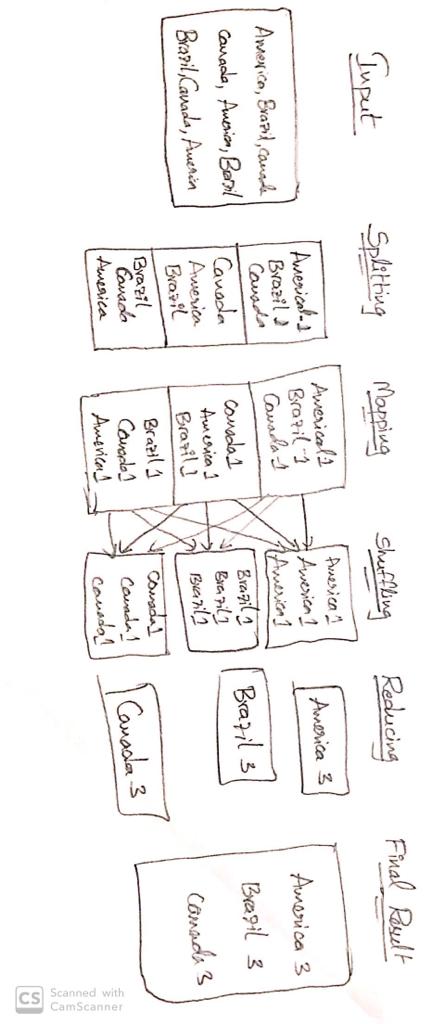 Input
America, Brazil, Canada
Canada, America, Brazil
Brazil, Canada, America
Splitting
America-1
Brazil 1
Canada
Canada
America
Brazil
Brazil
Canada
America
Mapping
America 1
Brazil -1
Canada-1
Canada 1
America 1
Brazil 1
Brazil 1
Canada 1
America 1
Shuffling
America 1
America 1
America 1
Brazil 1
Brazil 1
Brazil 1
Canada 1
Canada 1
Canada 1
Reducing
America 3
Brazil 3
Canada 3
Final Result
America 3
Brazil 3
Canada 3
CS Scanned with
CamScanner